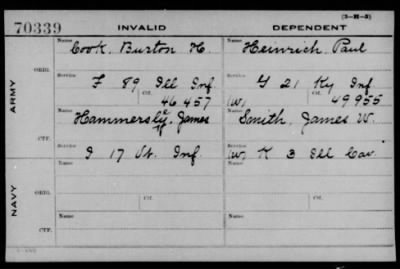 (3-H-3)
70339 INVALID DEPENDENT
Name Name
Cook, Burton H. Heinrich, Paul
ORIG.
Service Service
F 89 Ill Inf. G 21 Ky Inf
Ctf. 46 457 (W) Ctf. 49 955
ARMY
Name Name
Hammersly, James Smith, James W.
CTF.
Service Service
I 17 Inf. (W) K 3 Ill Cav
Name Name
NAVY
ORIG.
Service Ctf. Service Ctf.
Name Name
CTF.
Service Service